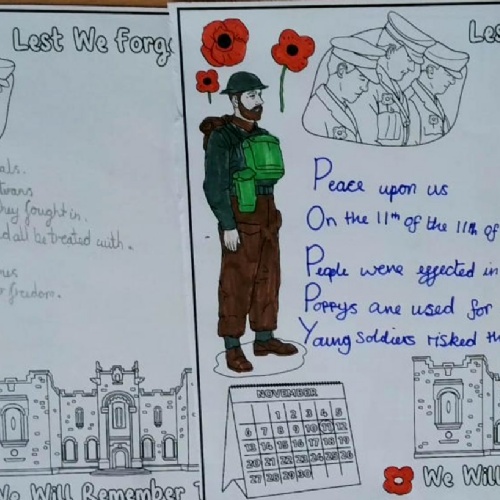 Lest We Forg
als.
trans
they fought in.
d all be treated with.
us
r freedom.
We Will Remember T
Les
Peace upon us
On the 11th of the 11th of
People were effected in
Poppys are used for
Young Soldiers risked th
NOVEMBER
1 2 3 4 5
6 7 8 9 10 11 12
13 14 15 16 17 18 19
20 21 22 23 24 25 26
27 28 29 30
We Will